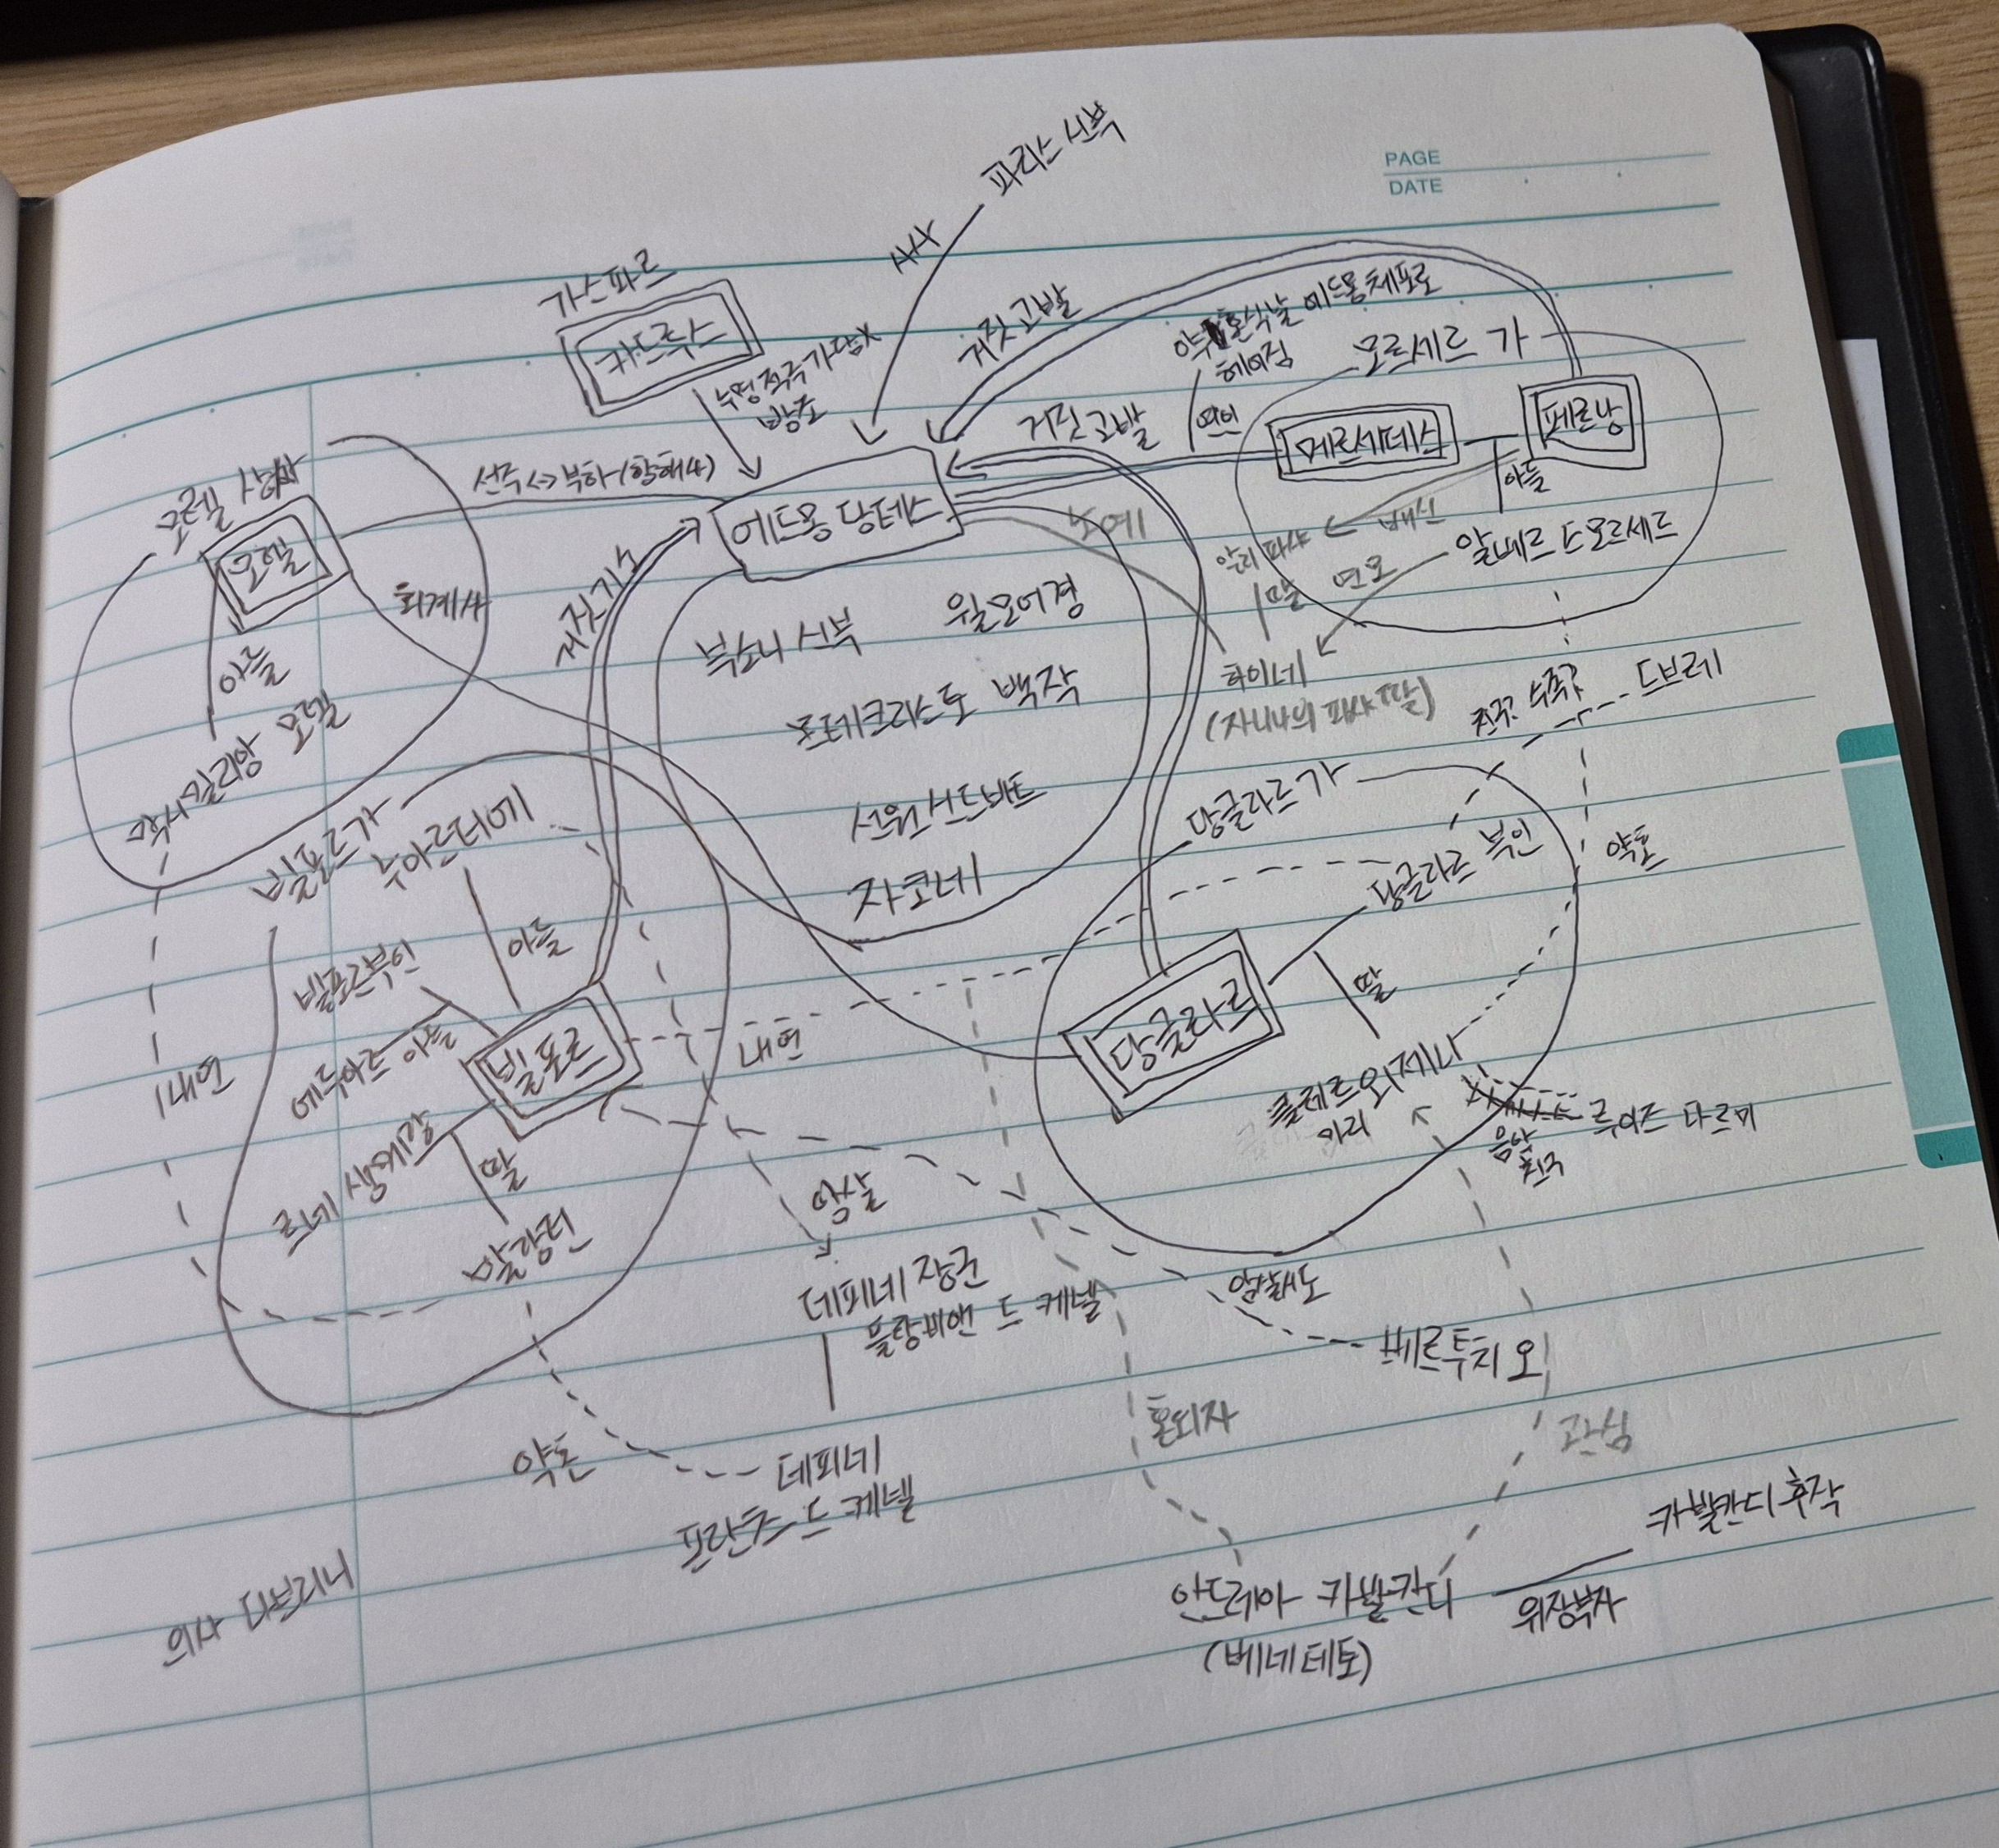 PAGE
DATE
파리스 신부
사사
가스파르
카드루스
누명 적극가담X
방조
거짓 고발
약혼식날 에드몽 체포로
헤어짐
연인
모르세르 가
메르세데스
페르낭
아들
알베르 드 모르세르
거짓 고발
배신
알리 파샤
딸
연모
하이네
(자니나의 파샤 딸)
노예
모렐 상사
모렐
선주 <-> 부하 (항해사)
회계사
아들
막시밀리앙 모렐
에드몽 당테스
부소니 신부
윌모어경
몬테크리스토 백작
선원 신드바트
자코네
거짓기소
드브레
당글라르 가
당글라르 부인
약혼
당글라르
딸
외제니
마리
루이즈 다르미
음악
친구
빌포르가
누아르티에
아들
빌포르부인
에두아르 아들
빌포르
르네 생메랑
딸
발랑틴
내연
내연
암살
데피네 장군
플라비앤 드 케넬
암살시도
베르투치오
약혼
데피네
프란츠 드 케넬
혼외자
관심
카발칸디 후작
안드레아 카발칸디
위장부자
(베네데토)
의사 다브리니